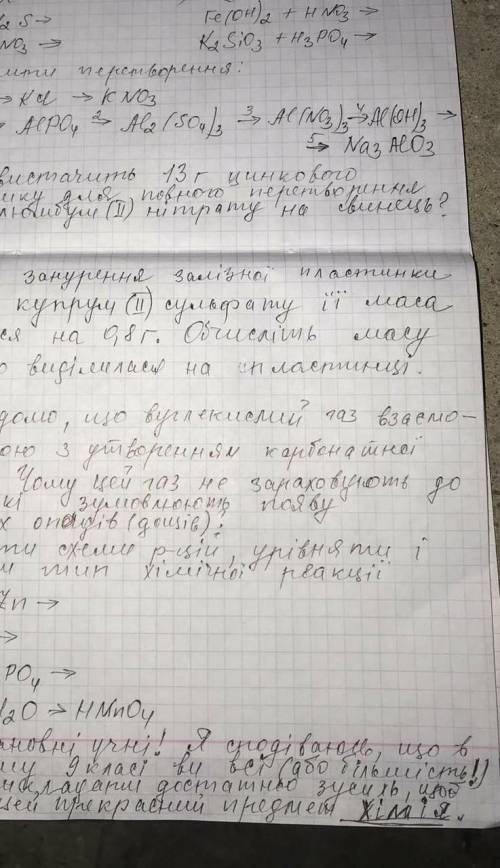 2 S →
Fe(OH)2 + HNO3 →
NO3 →
K2SiO3 + H3PO4 →
ити перетворення:
→ KCl → KNO3
AlPO4 2→ Al2(SO4)3 3→ Al(NO3)3 4→ Al(OH)3 →
5→ Na3AlO3
вистачить 13 г цинкового
ику для повного перетворення
люмбум (II) нітрату на свинець?
занурення залізної пластинки
купрум (II) сульфату її маса
ся на 0,8 г. Обчисліть масу
о виділилася на пластинці.
домо, що вуглекислий газ взаємо-
ою з утворенням карбонатної
Чому цей газ не зараховують до
кі зумовлюють появу
х опадів (дощів);
ти схеми р-цій, урівняти і
и тип хімічної реакції
Zn →
→
PO4 →
2O → HMnO4
ановні учні! Я сподіваюсь, що в
му 9 класі ви всі (або більшість!)
икладати достатньо зусиль, щоб
цей прекрасний предмет хімія.